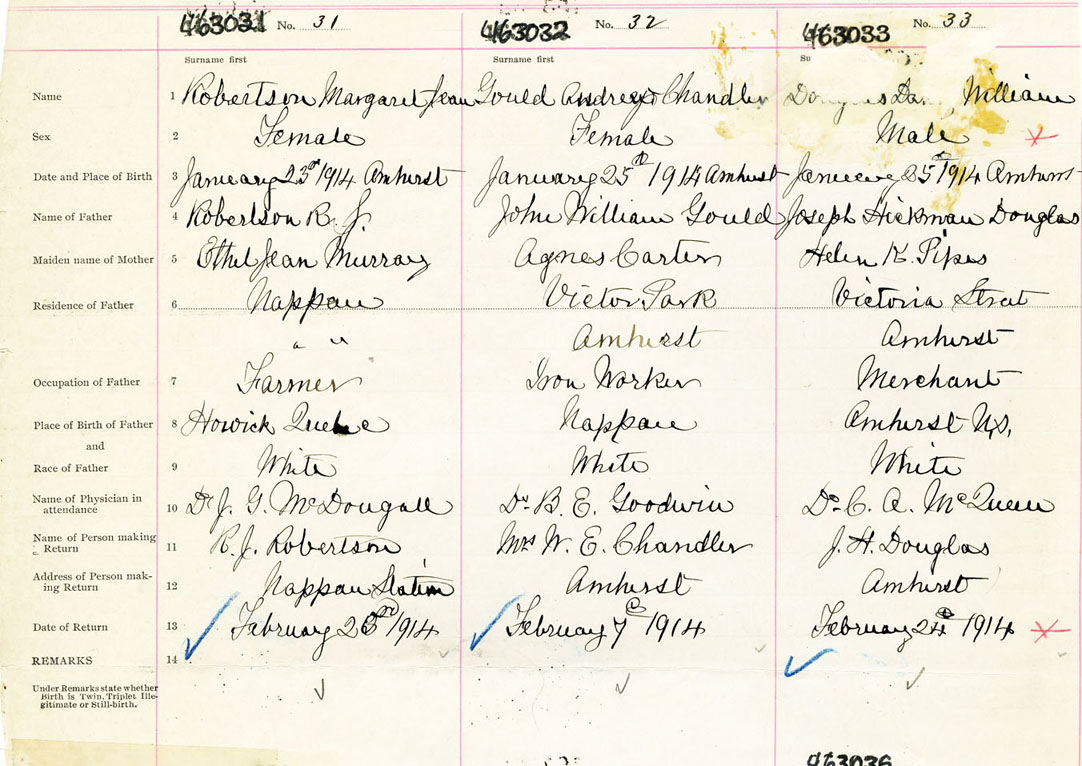 463031 No. 31 463032 No. 32 463033 No. 33
Surname first Surname first Su
Name 1 Robertson Margaret Jean Gould Chandler Douglas William
Sex 2 Female Female Male
Date and Place of Birth 3 January 23rd 1914 Amherst January 25th 1914 Amherst January 25th 1914 Amherst
Name of Father 4 Robertson R. J. John William Gould Joseph Hickman Douglas
Maiden name of Mother 5 Ethel Jean Murray Agnes Carter Helen K. Pipes
Residence of Father 6 Nappan Victor Park Victoria Street
" " Amherst Amherst
Occupation of Father 7 Farmer Iron Worker Merchant
Place of Birth of Father 8 Howick Quebec Nappan Amherst N.S.
and
Race of Father 9 White White White
Name of Physician in
attendance 10 Dr J. G. McDougall Dr B. E. Goodwin Dr C. A. McQueen
Name of Person making
Return 11 R. J. Robertson Mrs W. E. Chandler J. H. Douglas
Address of Person mak-
ing Return 12 Nappan Station Amherst Amherst
Date of Return 13 February 1914 February 7th 1914 February 24th 1914
REMARKS 14
Under Remarks state whether
Birth is Twin, Triplet Ille-
gitimate or Still-birth.
463036